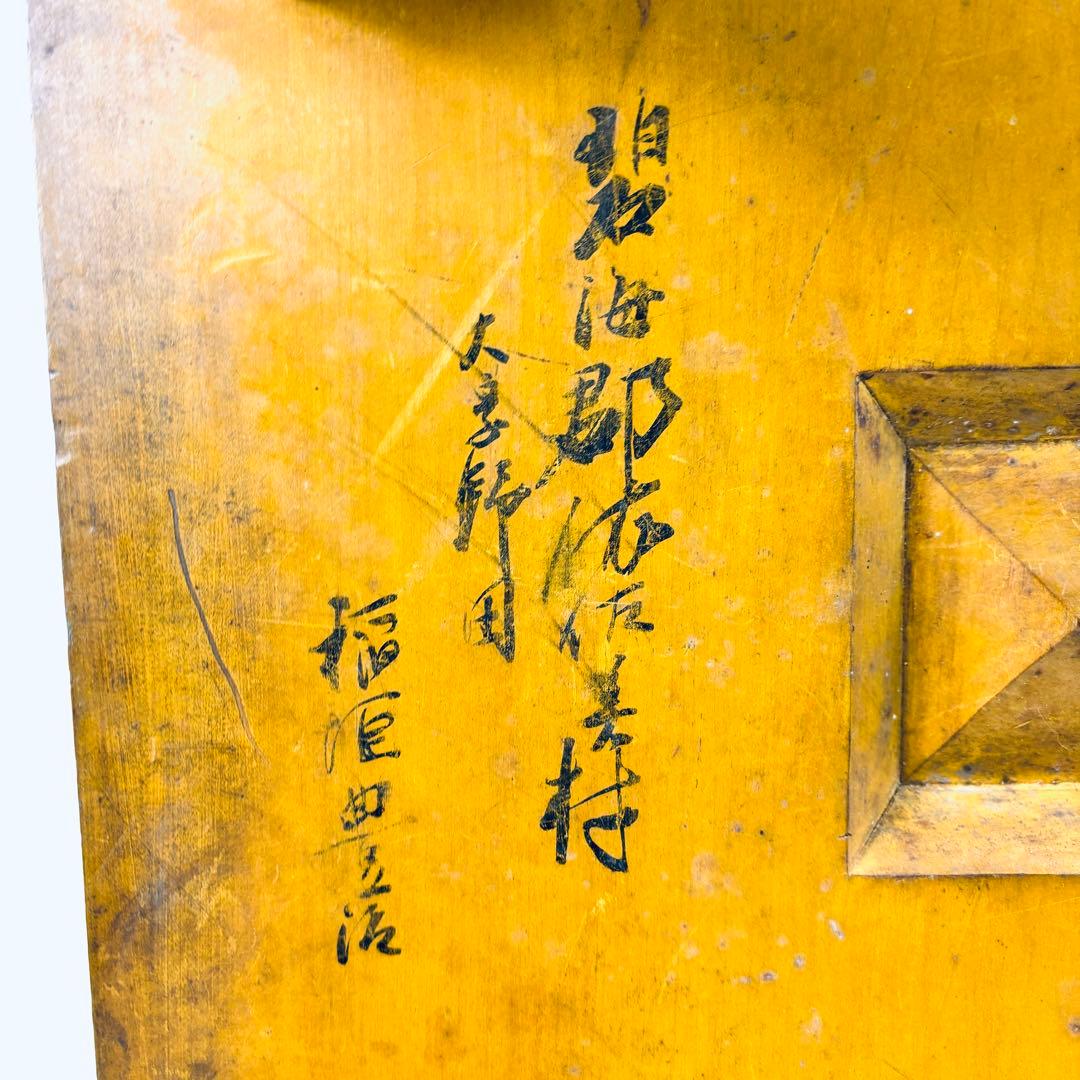 碧海郡依佐美村
大字野田
稲垣豊治